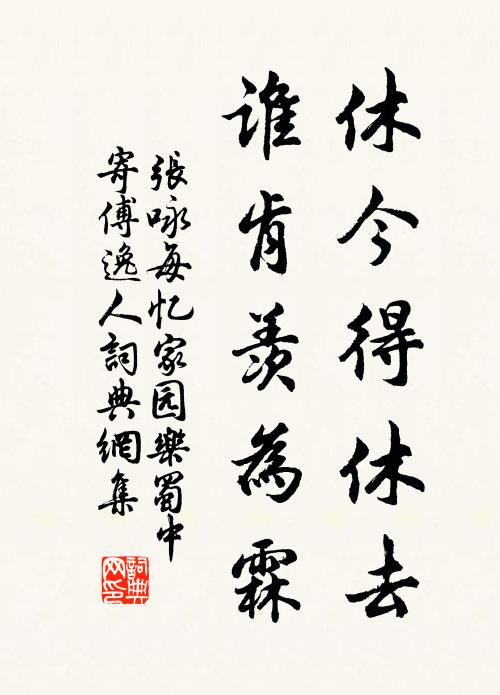 休今得休去
誰肯羨為霖
張咏每忆家园樂蜀中
寄傅逸人詞典網集
詞典网印